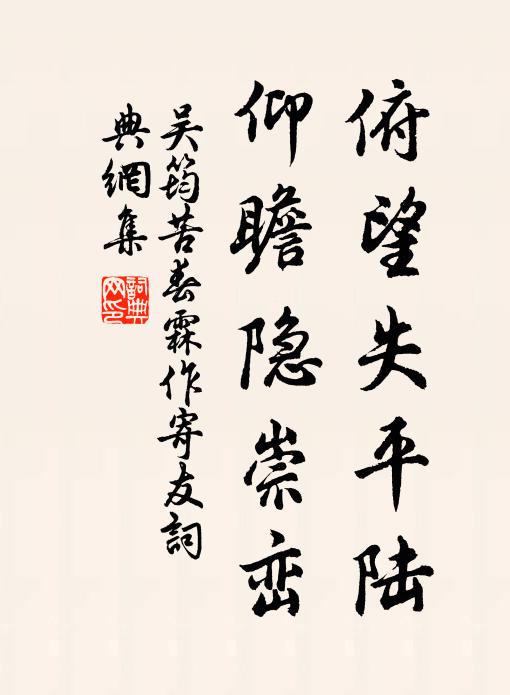 俯望失平陆
仰瞻隐崇峦
吴筠苦春霖作寄友詞
典網集
詞典
网印